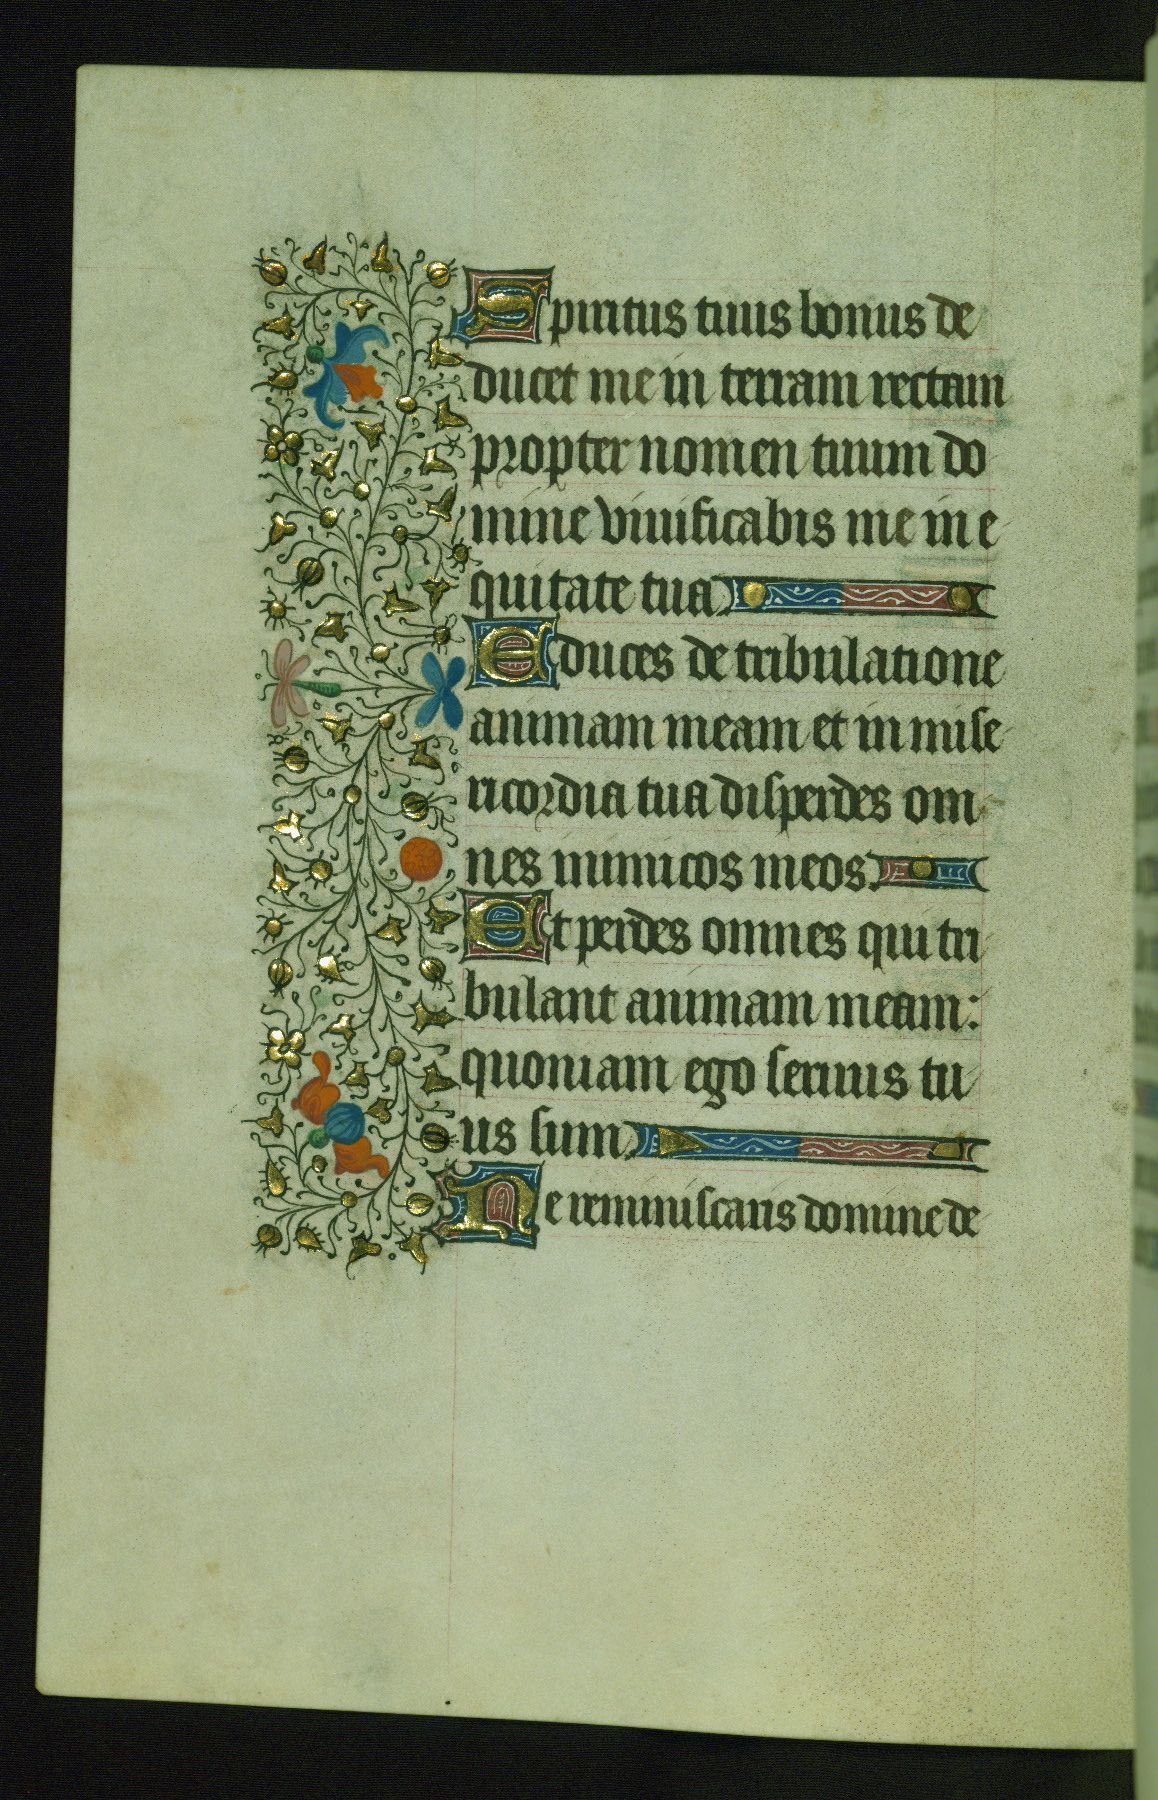 Spiritus tuus bonus de
ducet me in terram rectam
propter nomen tuum do
mine viuificabis me in e
quitate tua
Educes de tribulatione
animam meam et in mise
ricordia tua disperdes om
nes inimicos meos.
Et perdes omnes qui tri
bulant animam meam:
quoniam ego seruus tu
us sum
Ne reminiscaris domine de